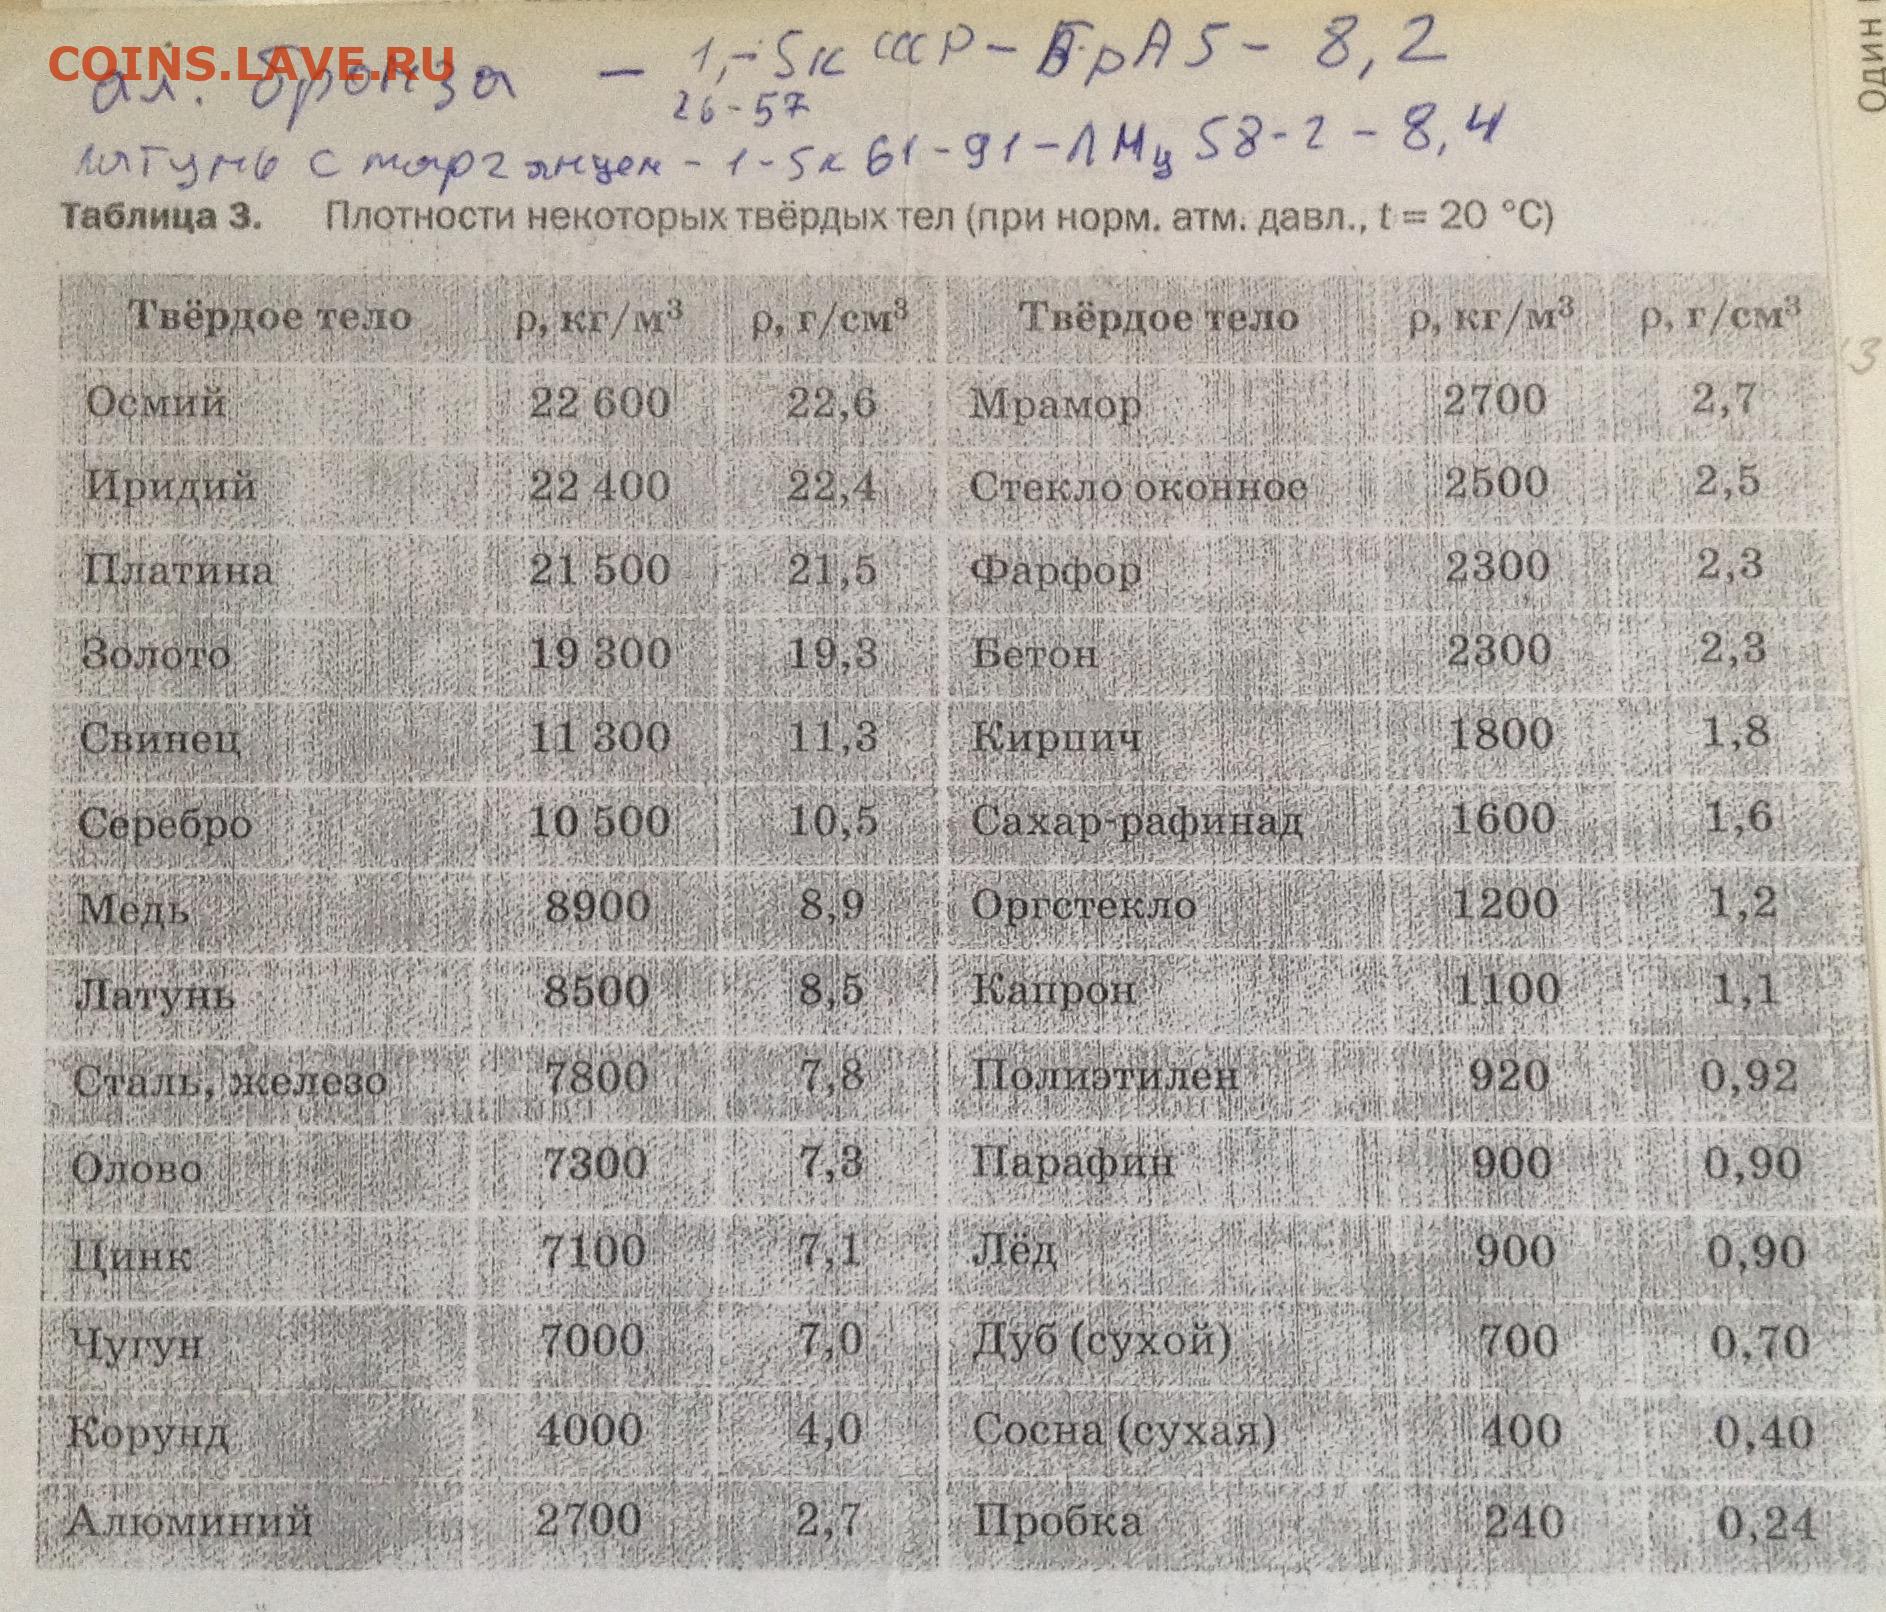 COINS.LAVE.RU
ал. бронза – 1,-5к СССР – БрА5 – 8,2
26-57
латунь с марганцем – 1-5к 61-91 – ЛМц 58-2 – 8,4
Таблица 3. Плотности некоторых твёрдых тел (при норм. атм. давл., t = 20 °C)
Твёрдое тело ρ, кг/м³ ρ, г/см³ Твёрдое тело ρ, кг/м³ ρ, г/см³
Осмий 22 600 22,6 Мрамор 2700 2,7
Иридий 22 400 22,4 Стекло оконное 2500 2,5
Платина 21 500 21,5 Фарфор 2300 2,3
Золото 19 300 19,3 Бетон 2300 2,3
Свинец 11 300 11,3 Кирпич 1800 1,8
Серебро 10 500 10,5 Сахар-рафинад 1600 1,6
Медь 8900 8,9 Оргстекло 1200 1,2
Латунь 8500 8,5 Капрон 1100 1,1
Сталь, железо 7800 7,8 Полиэтилен 920 0,92
Олово 7300 7,3 Парафин 900 0,90
Цинк 7100 7,1 Лёд 900 0,90
Чугун 7000 7,0 Дуб (сухой) 700 0,70
Корунд 4000 4,0 Сосна (сухая) 400 0,40
Алюминий 2700 2,7 Пробка 240 0,24
Один
3